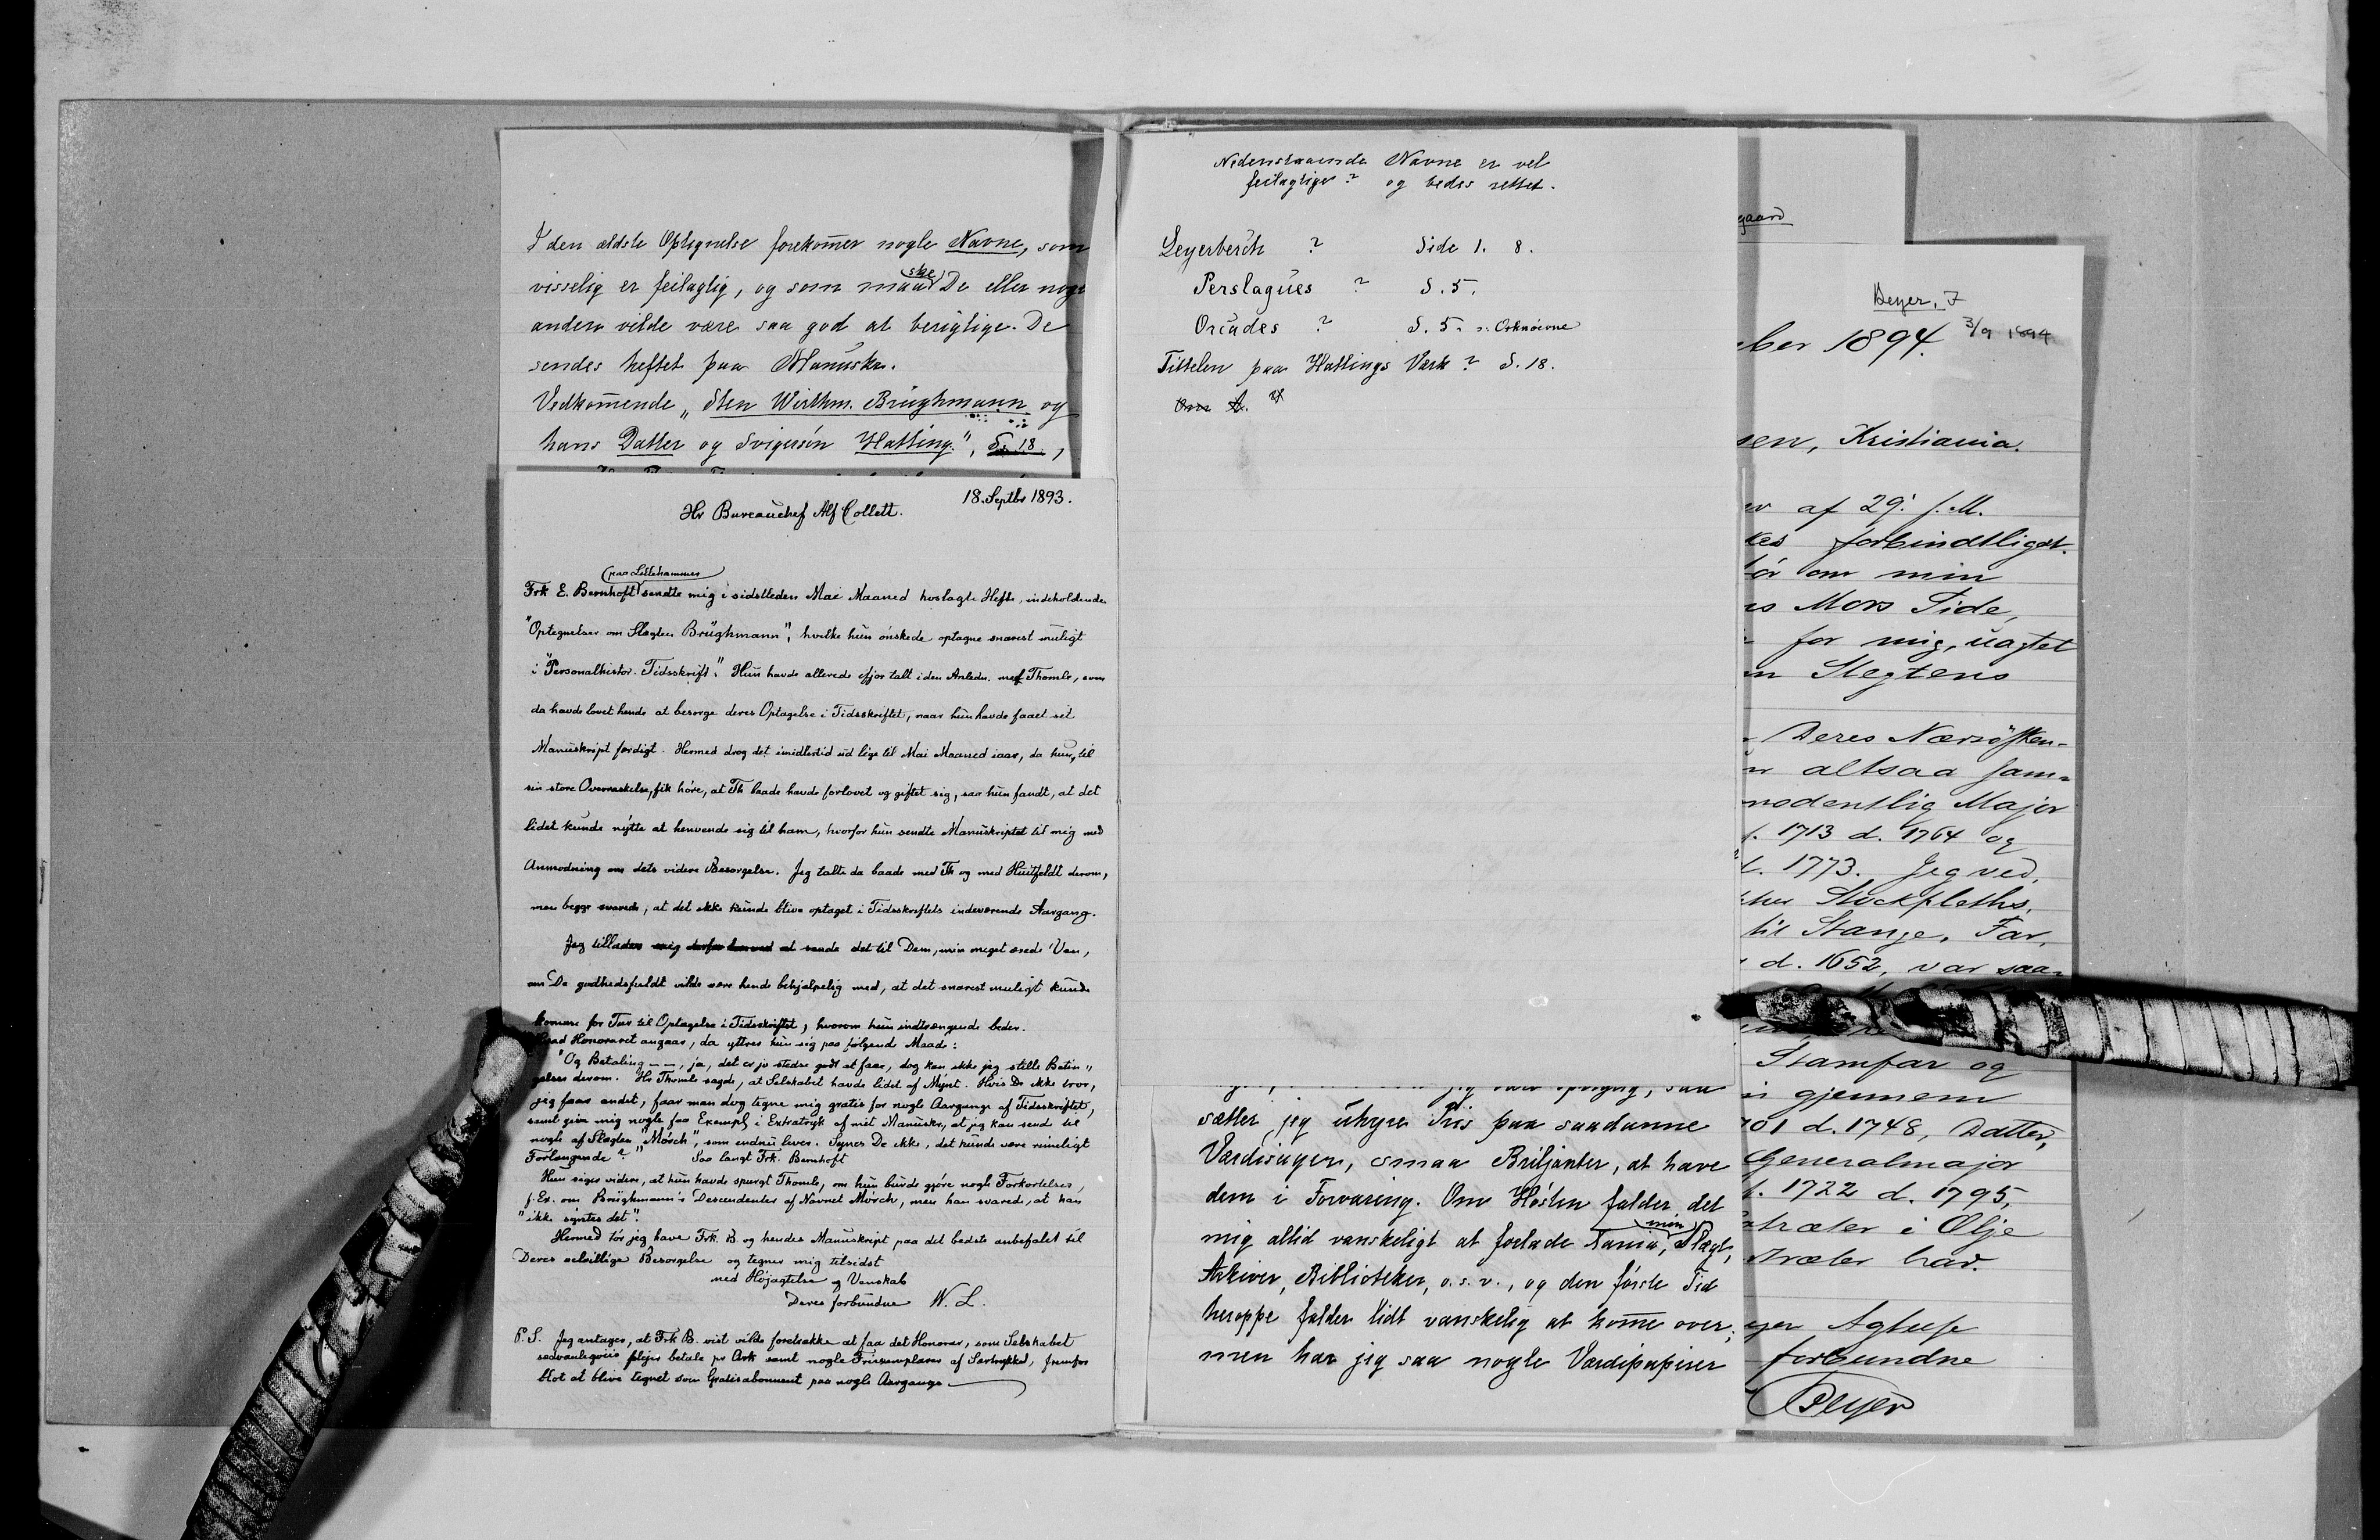 I den ældste Optegnelse forekom̄er nogle Navne, som
visselig er feilagtig, og som maaske De eller noge
anden vilde være saa god at berigtige. De
sendes heftet paa Manuskr.
Vedkom̄ende „Sten Wirthm. Brüghmann og
hans Datter og Svigersön Hatting.", S. 18,
18. Septbr 1893.
Hr Bureauchef Alf Collett.
(paa Lillehammer)
Frk E. Bernhoft sendte mig i sidstleden Mai Maaned hoslagte Hefte, indeholdende
"Optegnelser om Slægten Brüghmann", hvilke hun önskede optagne snarest muligt
i "Personalhistor. Tidsskrift". Hun havde allerede ifjor talt i den Anledn. med Thomle, som
da havde lovet hende at besørge deres Optagelse i Tidsskriftet, naar hun havde faaet sit
Manuskript færdigt. Hermed drog det imidlertid ud lige til Mai Maaned iaar, da hun, til
sin store Overraskelse, fik høre, at Th baade havde forlovet og giftet sig, saa hun fandt, at det
lidet kunde nytte at henvende sig til ham, hvorfor hun sendte Manuskriptet til mig med
Anmodning om dets videre Besørgelse. Jeg talte da baade med Th og med Huitfeldt derom,
men begge svarede, at det ikke kunde blive optaget i Tidsskriftets indeværende Aargang.
Jeg tillader mig derfor herved at sende det til Dem, min meget ærede Ven,
om De godhedsfuldt vilde være hende behjælpelig med, at det snarest muligt kunde
komme for Tur til Optagelse i Tidsskriftet, hvorom hun indtrængende beder.
Hvad Honoraret angaar, da yttrer hun sig paa følgende Maade:
"Og Betaling — —, ja, det er jo stedse godt at faae, dog kan ikke jeg stille Betin„
gelser derom. Hr Thomle sagde, at Selskabet havde lidet af Mynt. Hvis De ikke tror,
jeg faaer andet, faar man dog tegne mig gratis for nogle Aargange af Tidsskriftet,
samt give mig nogle faa Exempl i Extratryk af mit Manuskr, at jeg kan sende til
nogle af Slægten "Mörch", som endnu lever. Synes De ikke, det kunde være rimeligt
Forlangende?" Saa langt Frk. Bernhoft
Hun siger videre, at hun havde spurgt Thomle, om hun burde gjøre nogle Forkortelser,
f. Ex. om Brüghmann's Descendenter af Navnet Mörch, men han svarede, at han
"ikke syntes det".
Hermed tör jeg have Frk. B. og hendes Manuskript paa det bedste anbefalet til
Deres velvillige Besørgelse og tegner mig tilsidst
med Höjagtelse og Venskab
Deres forbundne W. L.
P. S. Jeg antager, at Frk B. vist vilde foretrække at faa det Honorar, som Selskabet
sædvanligviis plejer betale pr Ark samt nogle Friexemplarer af Særtrykket, fremfor
blot at blive tegnet som Gratisabonnent paa nogle Aargange
Nedenstaaende Navne er vel
feilagtige? og bedes rettet.
Leyerberch ? Side 1. 8.
Perslagues ? S. 5.
Orcades ? S. 5. ɔ: Orknöerne
Tittelen paa Hattings Værk? S. 18.
sætter jeg uhyre Pris paa saadanne
Værdisager, smaa Briljanter, at have
dem i Forvaring. Om Hösten falder det
mig altid vanskeligt at forlade Xania, min Slægt,
Arkiver, Biblioteker, o. s. v., og den förste Tid
heroppe falder lidt vanskelig at kom̄e over;
men har jeg saa nogle Værdipapirer
gaard
Beyer, F
3/9 1894
ber 1894.
sen, Kristiania.
af 29' f. M.
kes forbindtligst.
för om min
s Mors Side,
for mig, uagtet
Slegtens
Deres Næssösken-
altsaa fam-
modentlig Major
f. 1713 d. 1764 og
t. 1773. Jeg ved,
Stockfleths,
til Stange. Far,
d. 1652, var saa-
Stamfar og
gjennem
701 d. 1748, Datter,
Generalmajor
f. 1722 d. 1795,
træter i Olje
træter har.
Agtelse
forbundne
Beyer